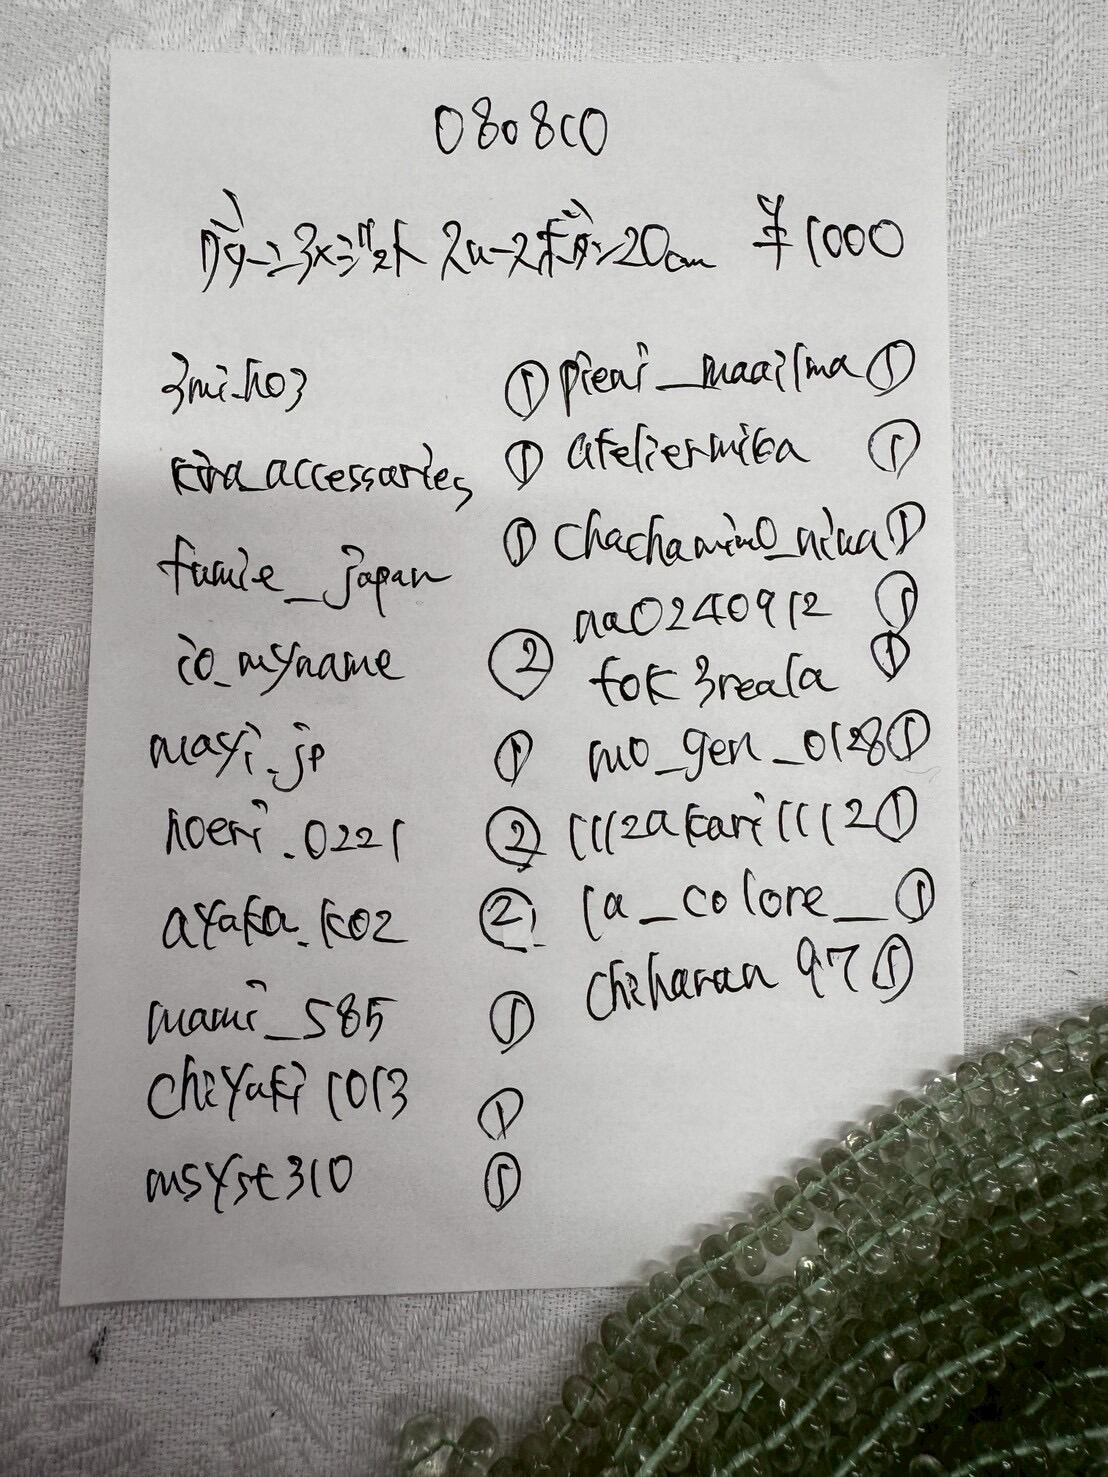 080810
20cm ¥1000
3mi.ho3 ①
kira_accessaries ①
fumie_japan ①
io_myname ②
mayi.jp ①
hoeri.0221 ②
ayaka.k02 ②
mami_585 ①
chiyaki1013 ①
msyst310 ①
pieni_maailma ①
ateliermika ①
chachamin0_nina ①
na0240912 ①
fok3reala ①
mo_gen_0128 ①
1112akari1112 ①
la_colore_ ①
chiharan97 ①